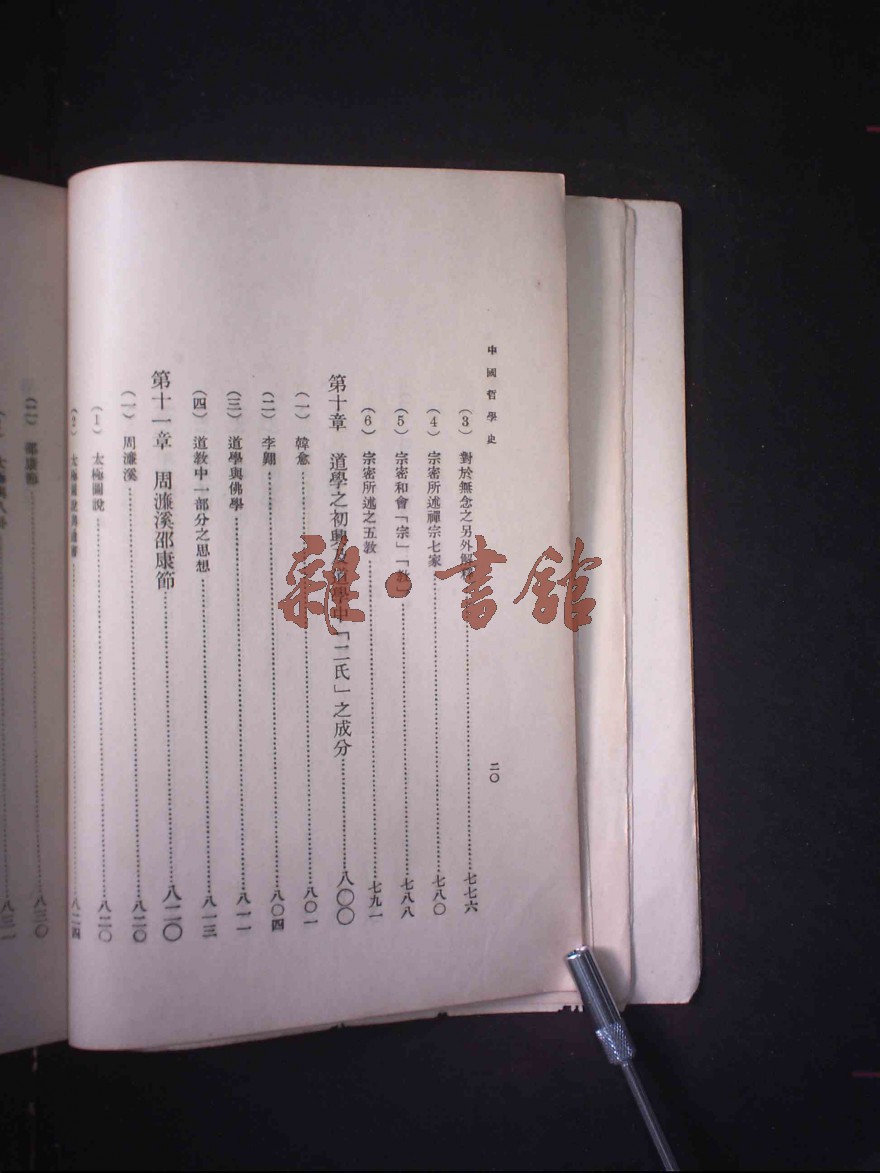 中國哲學史
二〇
（3）對於無念之另外解釋……七七六
（4）宗密所述禪宗七家……七八〇
（5）宗密和會「宗」「教」……七八八
（6）宗密所述之五教……七九一
第十章　道學之初興及道學中「二氏」之成分……八〇〇
（一）韓愈……八〇一
（二）李翺……八〇四
（三）道學與佛學……八一一
（四）道教中一部分之思想……八一三
第十一章　周濂溪邵康節……八二〇
（一）周濂溪……八二〇
（1）太極圖說……八二〇
（2）太極圖說與通書……八二四
（二）邵康節……八三〇
八三一
雜·書館